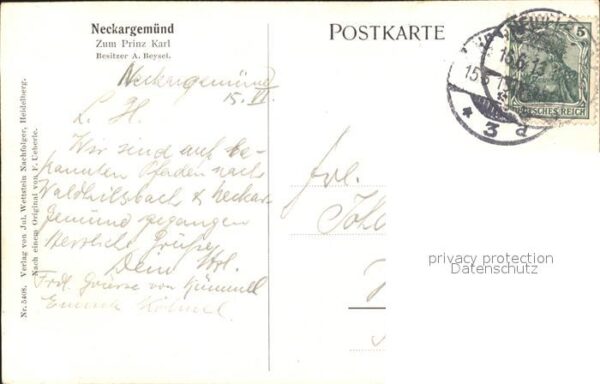 Neckargemünd
Zum Prinz Karl
Besitzer A. Beysel.
POSTKARTE
5
DEUTSCHES REICH
3 a
Neckargemünd
15. VI.
L. H.
Wir sind auf be-
kannten Pfaden nach
Waldhilsbach & Neckar-
gemünd gegangen
Herzliche Grüße
Dein
Frdl. Grüsse von Kümmel
Emma
Frl.
Nr. 5408. Verlag von Jul. Wettstein Nachfolger, Heidelberg.
Nach einem Original von F. Ueberle.
privacy protection
Datenschutz